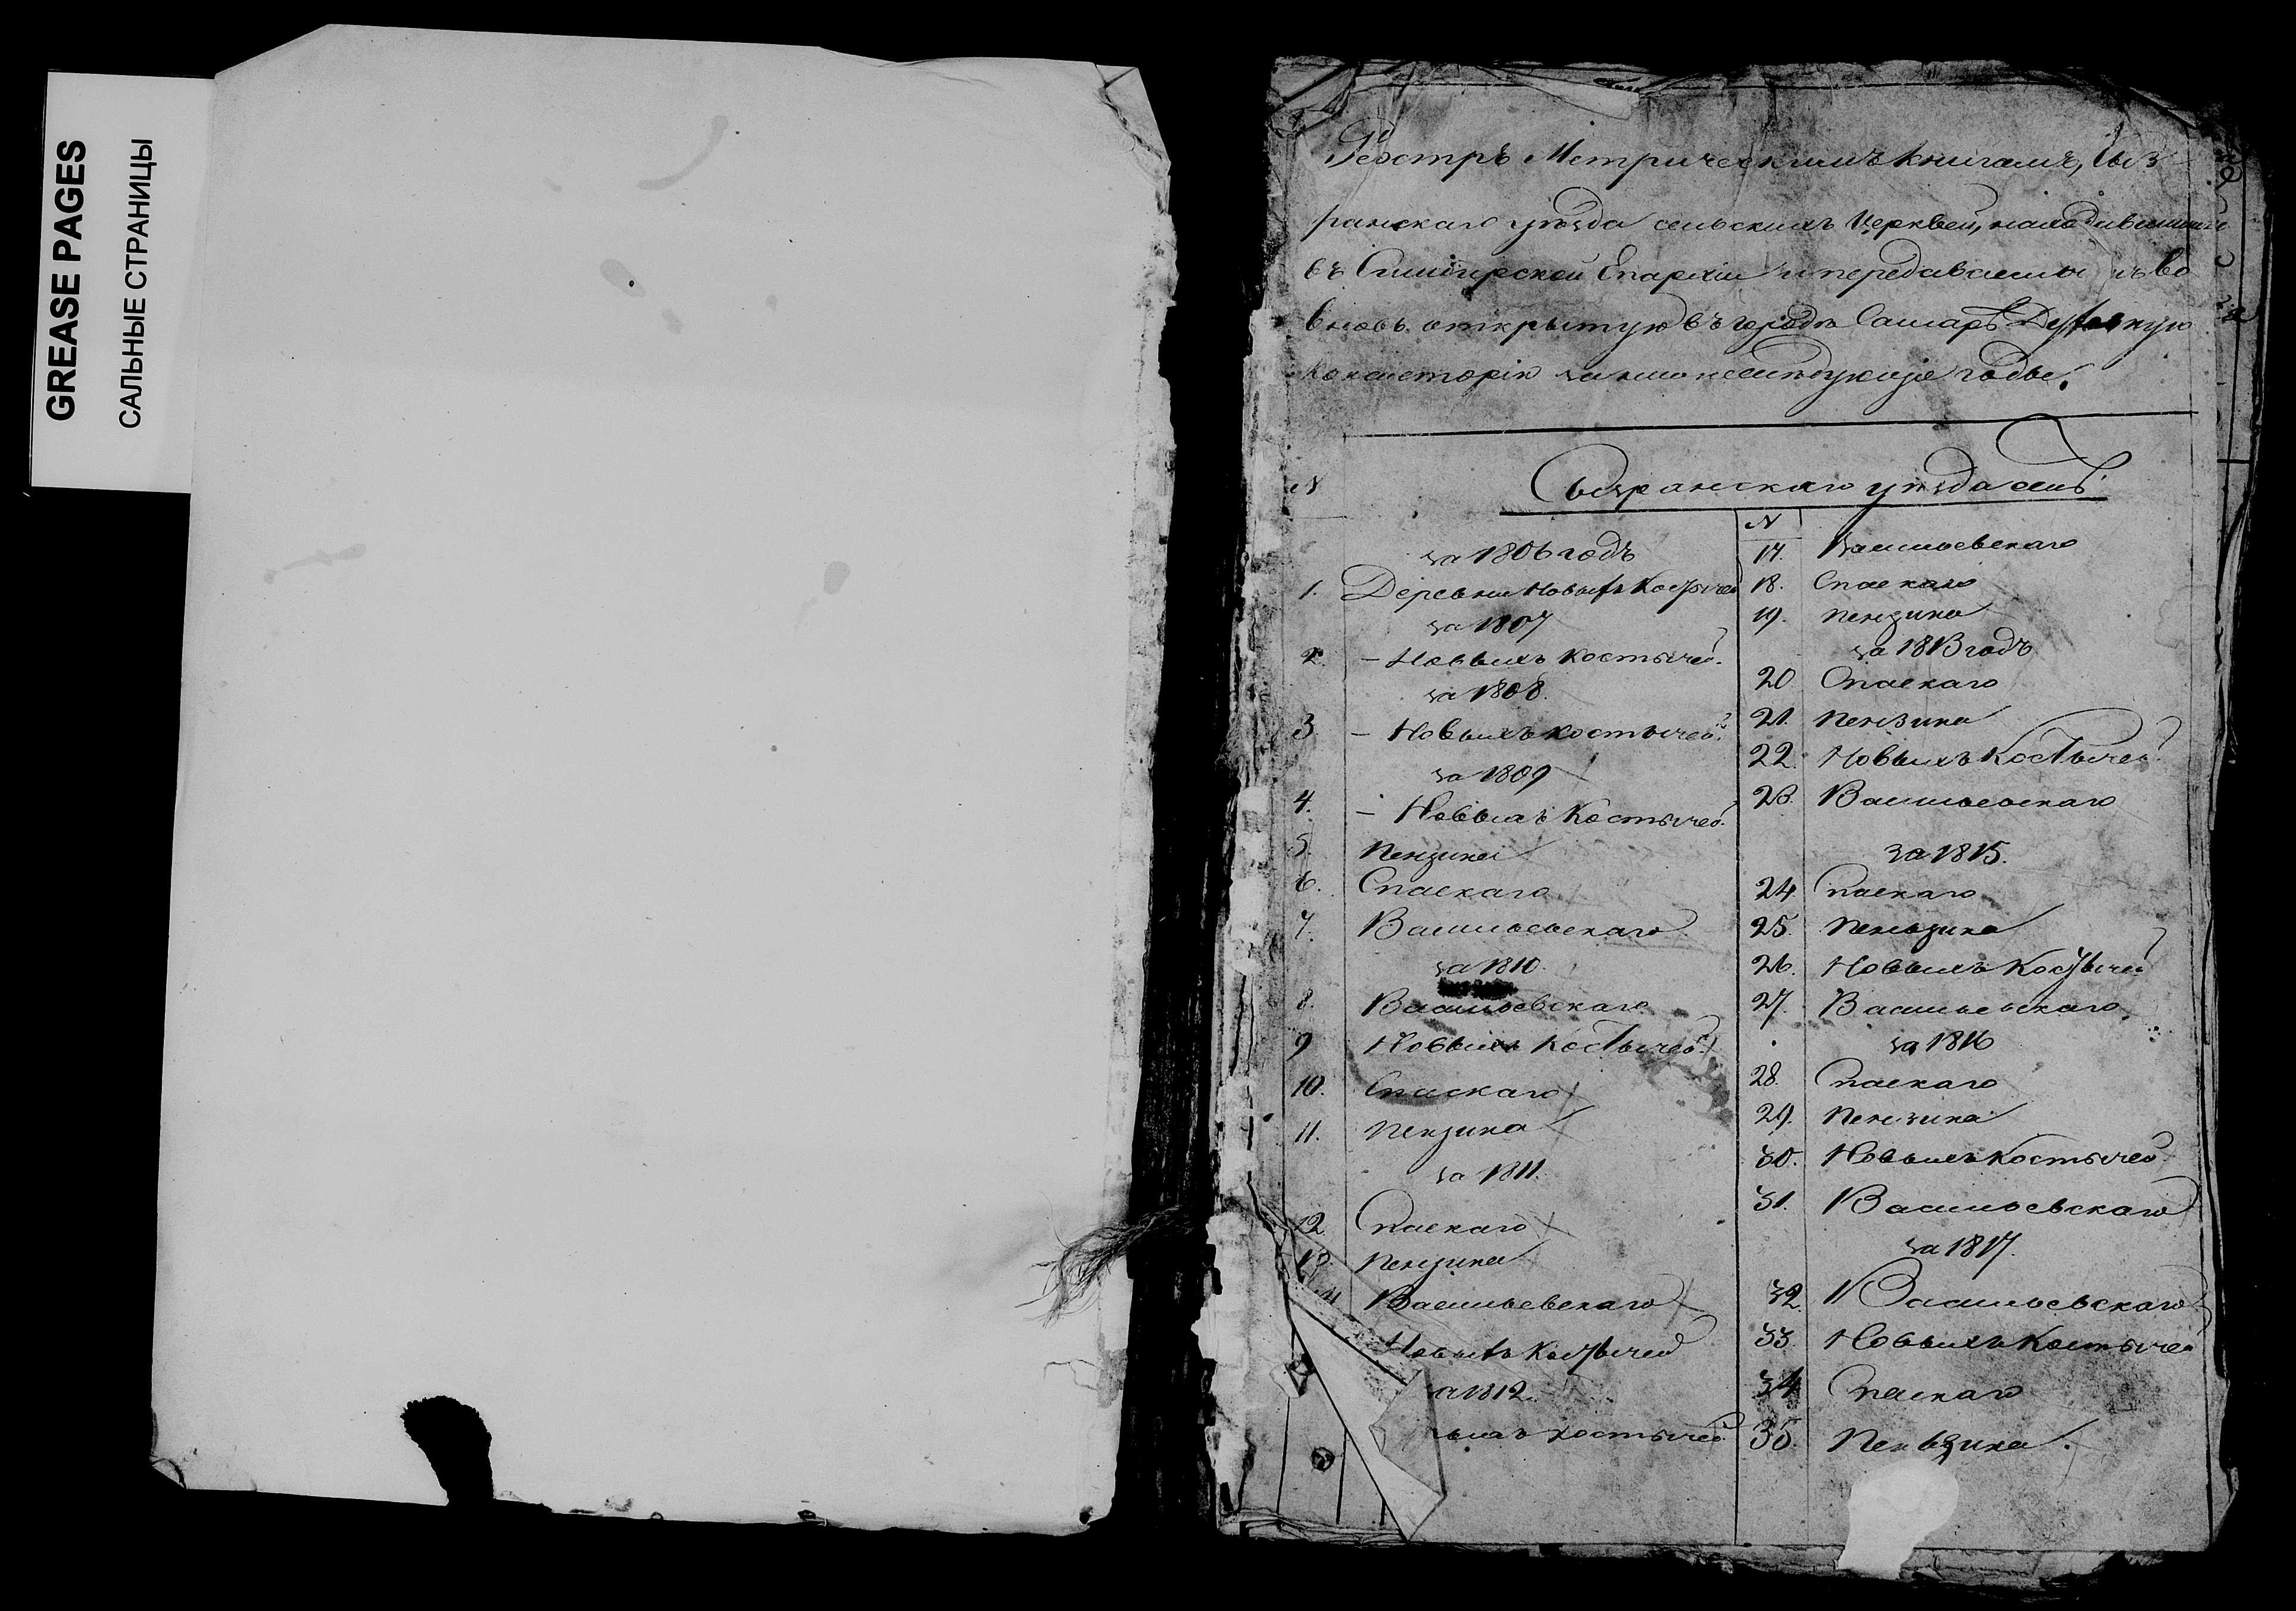 GREASE PAGES
САЛЬНЫЕ СТРАНИЦЫ
Реэстръ Метрическимъ книгамъ, Сыз
ранскаго уѣзда сельскихъ Церквей, находившимся
въ Симбирской Епархіи и передаваемы во
вновь открытую въ городѣ Самарѣ Духовную
Консисторію за нижеслѣдующіе годы.
N
Сызранскаго уѣзда селъ.
за 1806 годъ
1. Деревни Новыхъ Костычей
за 1807
2. – Новыхъ Костычей.
за 1808.
3 – Новыхъ Костычей.
за 1809
4. – Новыхъ Костычей.
5. Пензина
6. Спаскаго
7. Васильевскаго
за 1810.
8. Васильевскаго
9 Новыхъ Костычей.
10. Спаскаго
11. Пензина
за 1811.
12 Спаскаго
13. Пензина
14 Васильевскаго
Новыхъ Костычей
а 1812.
ыхъ Костычей.
N
17. Васильевскаго
18. Спаскаго
19. Пензина
за 1813 годъ
20 Спаскаго
21. Пензина
22. Новыхъ Костычей.
23. Васильевскаго
За 1815.
24 Спаскаго
25. Пеньзина
26. Новыхъ Костычей
27. Васильевскаго
за 1816
28. Спаскаго
29. Пензина
30. Новыхъ Костычей
31. Васильевскаго
за 1817.
32. Васильевскаго
33. Новыхъ Костычей
34 Спаскаго
35. Пеньзина.